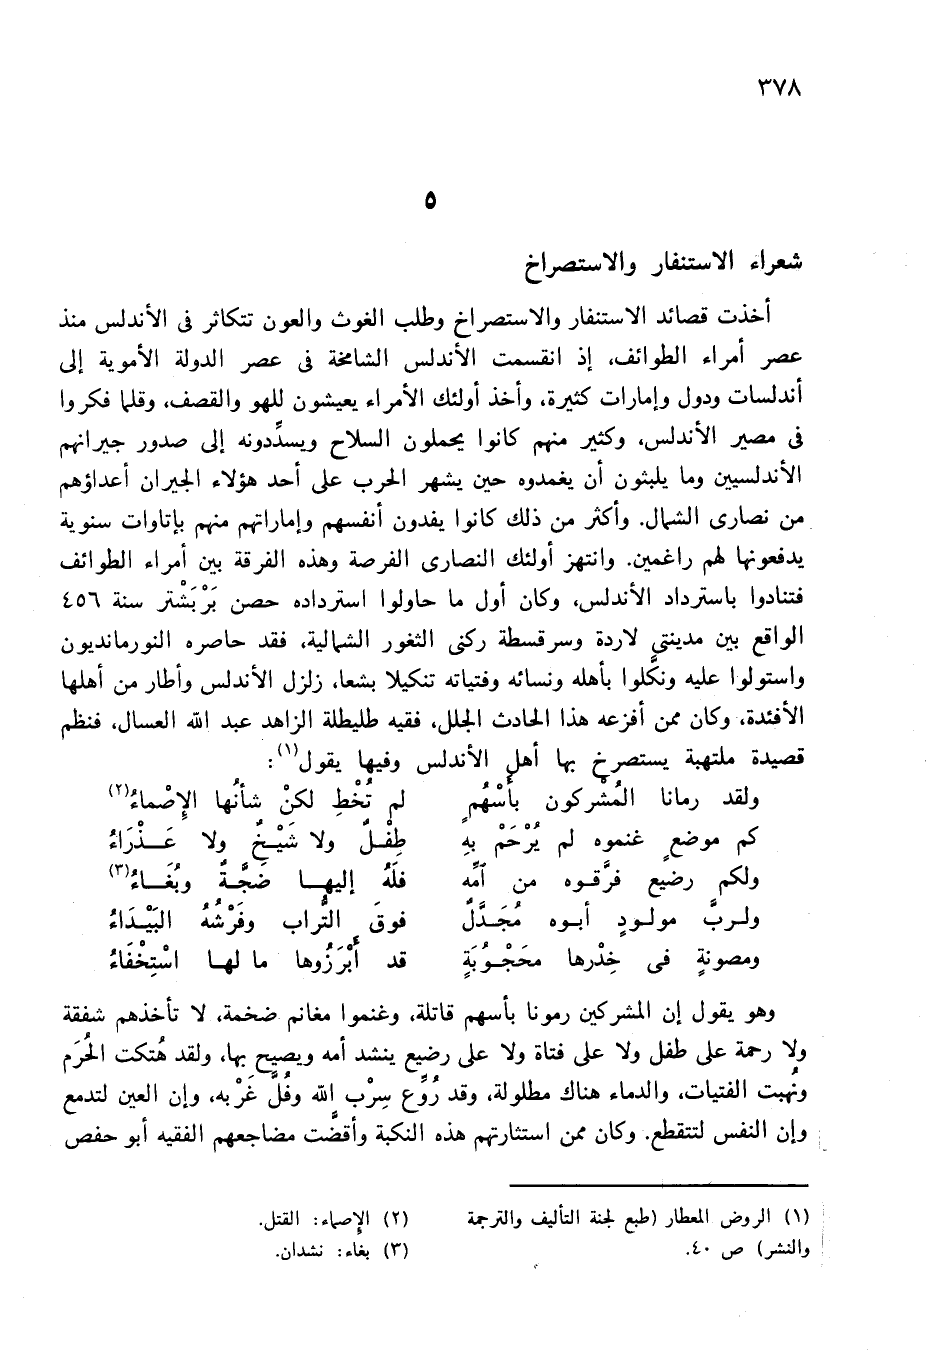 ٣٧٨
٥
شعراء الاستنفار والاستصراخ
أخذت قصائد الاستنفار والاستصراخ وطلب الغوث والعون تتكاثر فى الأندلس منذ
عصر أمراء الطوائف، إذ انقسمت الأندلس الشامخة فى عصر الدولة الأموية إلى
أندلسات ودول وإمارات كثيرة، وأخذ أولئك الأمراء يعيشون للهو والقصف، وقلما فكروا
فى مصير الأندلس، وكثير منهم كانوا يحملون السلاح ويسدِّدونه إلى صدور جيرانهم
الأندلسيين وما يلبثون أن يغمدوه حين يشهر الحرب على أحد هؤلاء الجيران أعداؤهم
من نصارى الشمال. وأكثر من ذلك كانوا يفدون أنفسهم وإماراتهم منهم بإتاوات سنوية
يدفعونها لهم راغمين. وانتهز أولئك النصارى الفرصة وهذه الفرقة بين أمراء الطوائف
فتنادوا باسترداد الأندلس، وكان أول ما حاولوا استرداده حصن بَرْبَشْتر سنة ٤٥٦
الواقع بين مدينتي لاردة وسرقسطة ركنى الثغور الشمالية، فقد حاصره النورمانديون
واستولوا عليه ونكَّلوا بأهله ونسائه وفتياته تنكيلا بشعا، زلزل الأندلس وأطار من أهلها
الأفئدة، وكان ممن أفزعه هذا الحادث الجلل، فقيه طليطلة الزاهد عبد الله العسال، فنظم
قصيدة ملتهبة يستصرخ بها أهل الأندلس وفيها يقول(١):
ولقد رمانا المُشْركون بأَسْهُمٍ لم تُخْطِ لكنْ شأنُها الإِصْماءُ(٢)
كم موضعٍ غنموه لم يُرْحَمْ بهِ طِفْلٌ ولا شَيْخٌ ولا عَذْرَاءُ
ولكم رضيع فرَّقوه من أمِّه فلَهُ إليها ضَجَّةٌ وبُغَاءُ(٣)
ولربَّ مولودٍ أبوه مُجَدَّلٌ فوقَ التُّراب وفَرْشُهُ البَيْدَاءُ
ومصونةٍ فى خِدْرها محَجْوبَةٍ قد أَبْرَزُوها ما لها اسْتِخْفَاءُ
وهو يقول إن المشركين رمونا بأسهم قاتلة، وغنموا مغانم ضخمة، لا تأخذهم شفقة
ولا رحمة على طفل ولا على فتاة ولا على رضيع ينشد أمه ويصيح بها، ولقد هُتكت الحُرَم
ونُهبت الفتيات، والدماء هناك مطلولة، وقد رُوِّع سِرْب الله وفُلَّ غَرْبه، وإن العين لتدمع
وإن النفس لتتقطع. وكان ممن استثارتهم هذه النكبة وأقضَّت مضاجعهم الفقيه أبو حفص
(١) الروض المعطار (طبع لجنة التأليف والترجمة
والنشر) ص ٤٠.
(٢) الإصماء: القتل.
(٣) بغاء: نشدان.